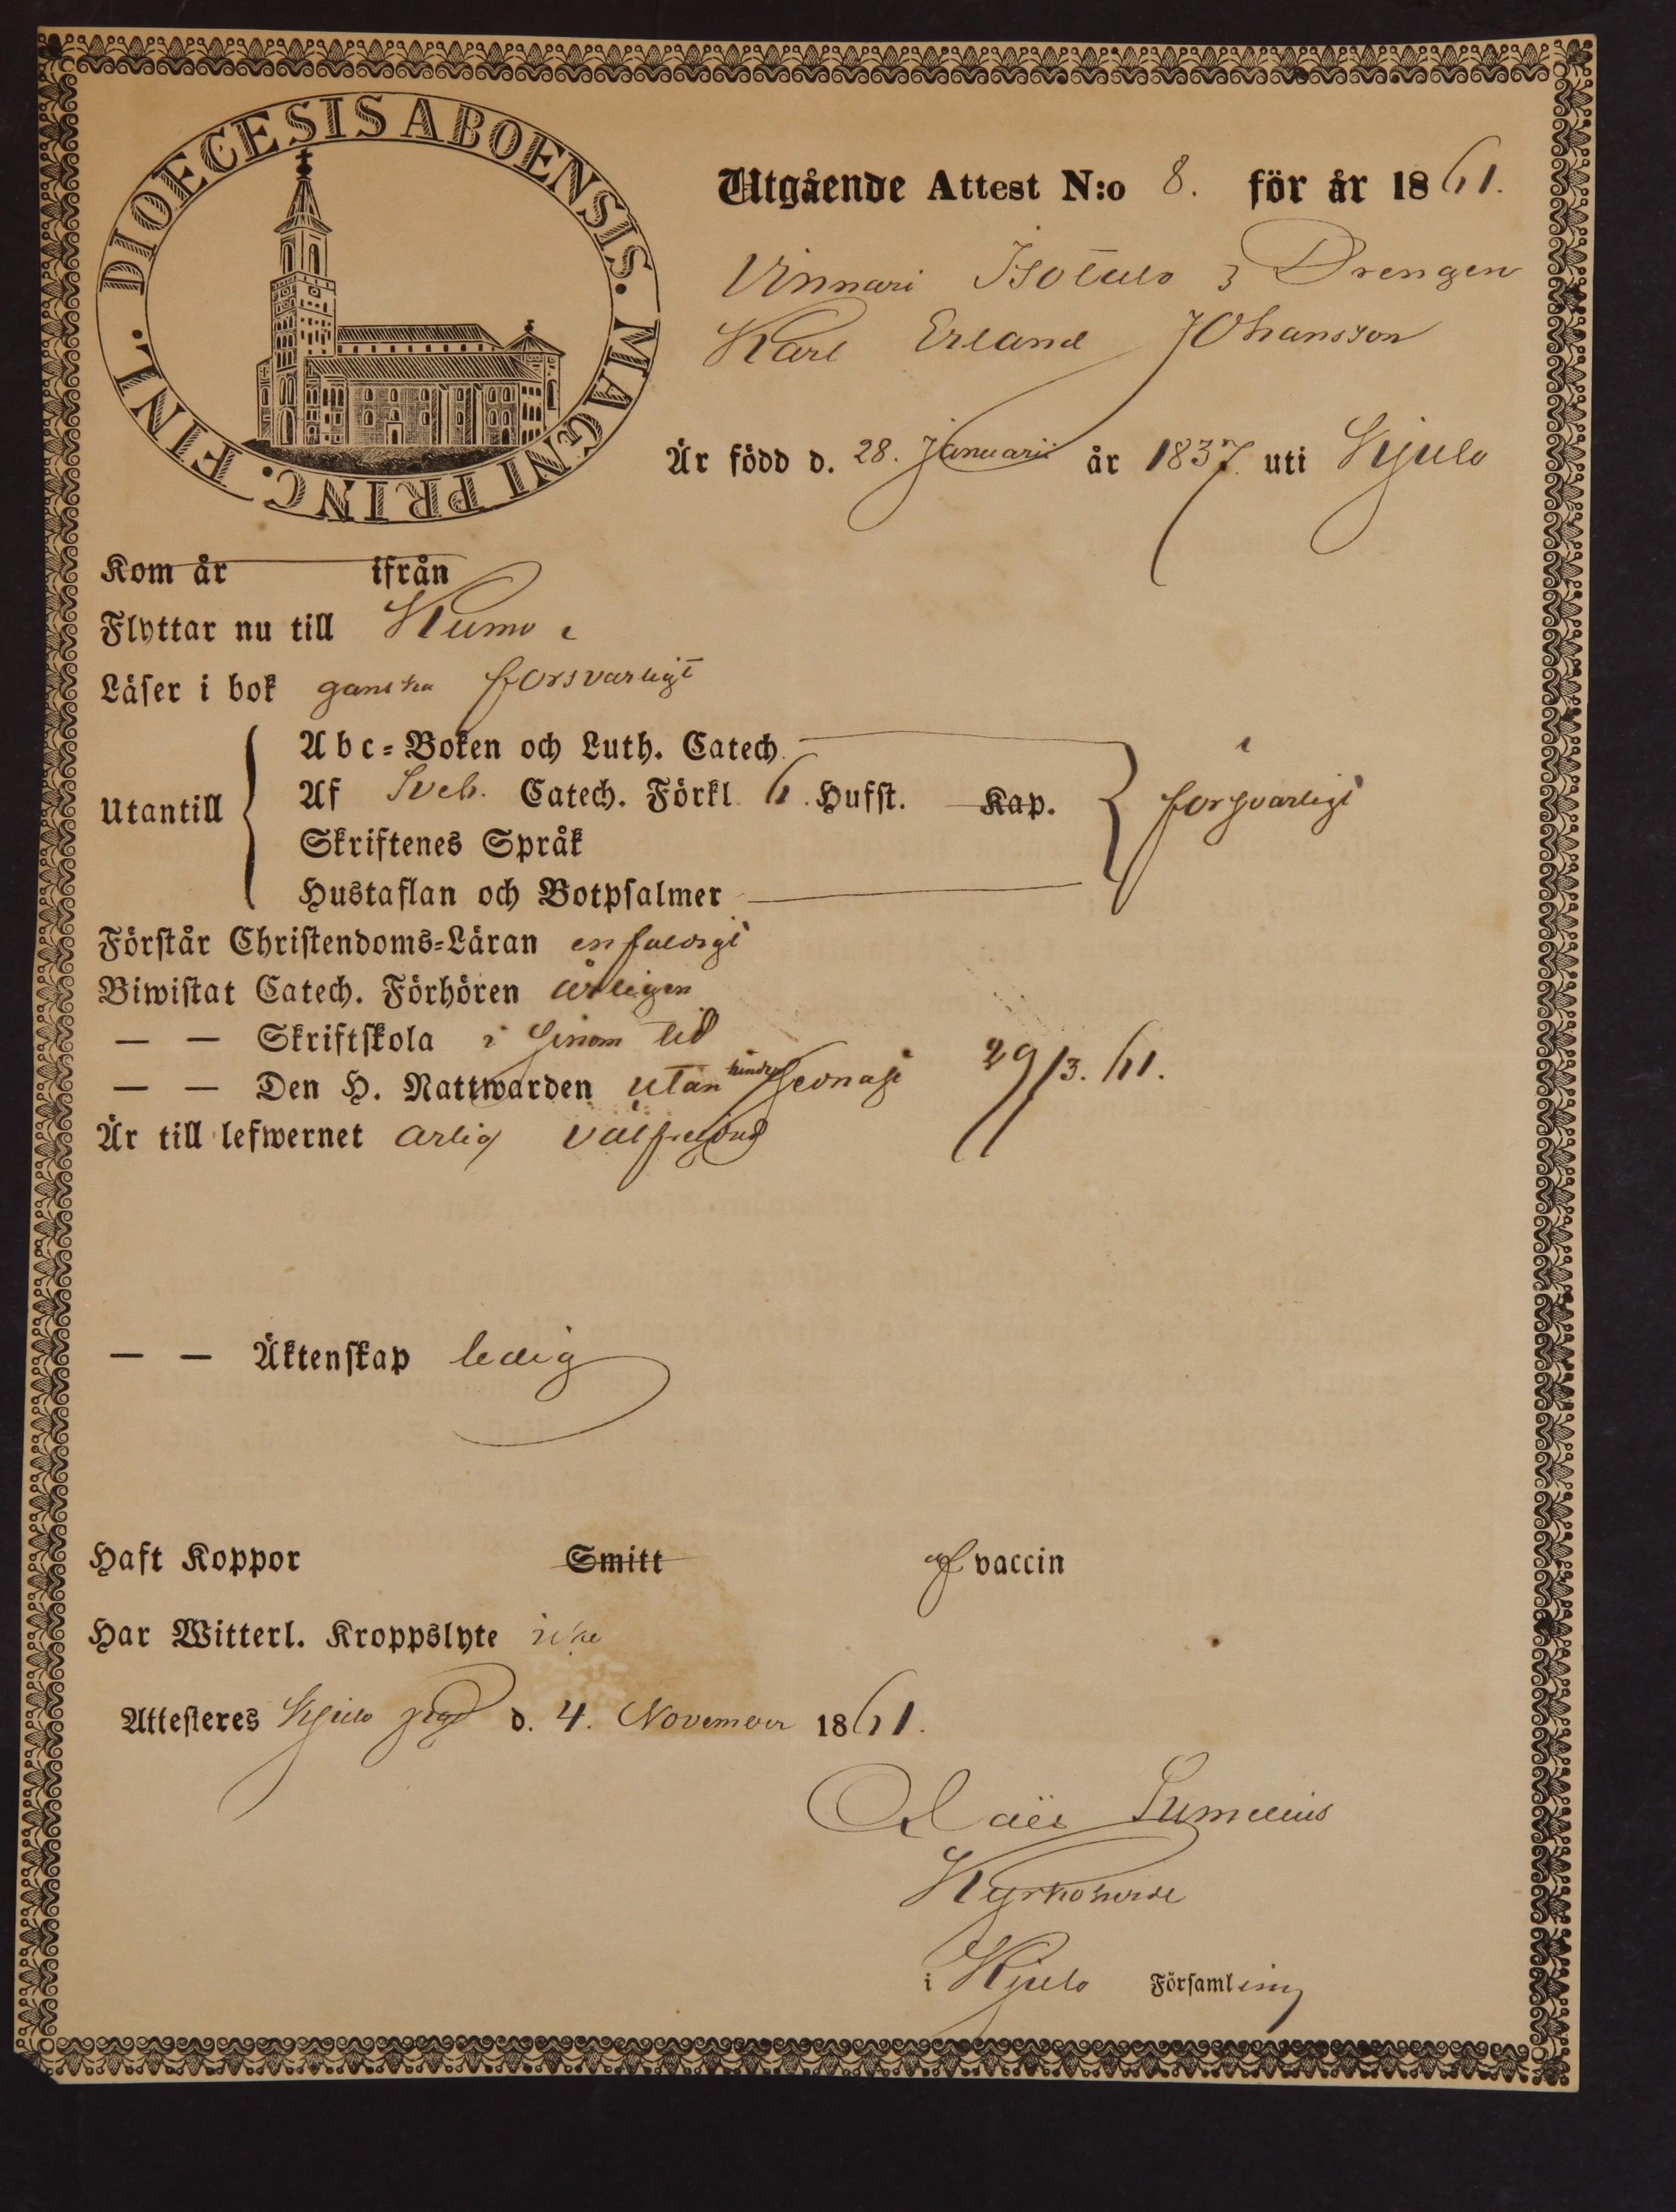 DIOECESIS ABOENSIS. MAGNI PRINC. FINL.
Utgående Attest N:o 8. för år 1861.
Vinnari Isotalo 3 Drengen
Karl Erland Johansson
Är född d. 28. Januarii år 1837. uti Kjulo
Kom år ifrån
Flyttar nu till Kumo
Läser i bok ganska försvarligt
Utantill
Abc-Boken och Luth. Catech.
Af Sveb. Catech. Förkl. 6. Hufst. Kap.
försvarligt
Skriftenes Språk
Hustaflan och Botpsalmer
Förstår Christendoms-Läran enfaldigt
Biwistat Catech. Förhören årligen
— — Skriftskola i sinom tid
— — Den H. Nattwarden utan hinder senast 29/3. 61.
Är till lefwernet ärlig välfrejdad
— — Äktenskap ledig
Haft Koppor Smitt af vaccin
Har Witterl. Kroppslyte icke
Attesteres Kjulo d. 4. November 1861.
Kyrkoherde
i Kjulo Församling